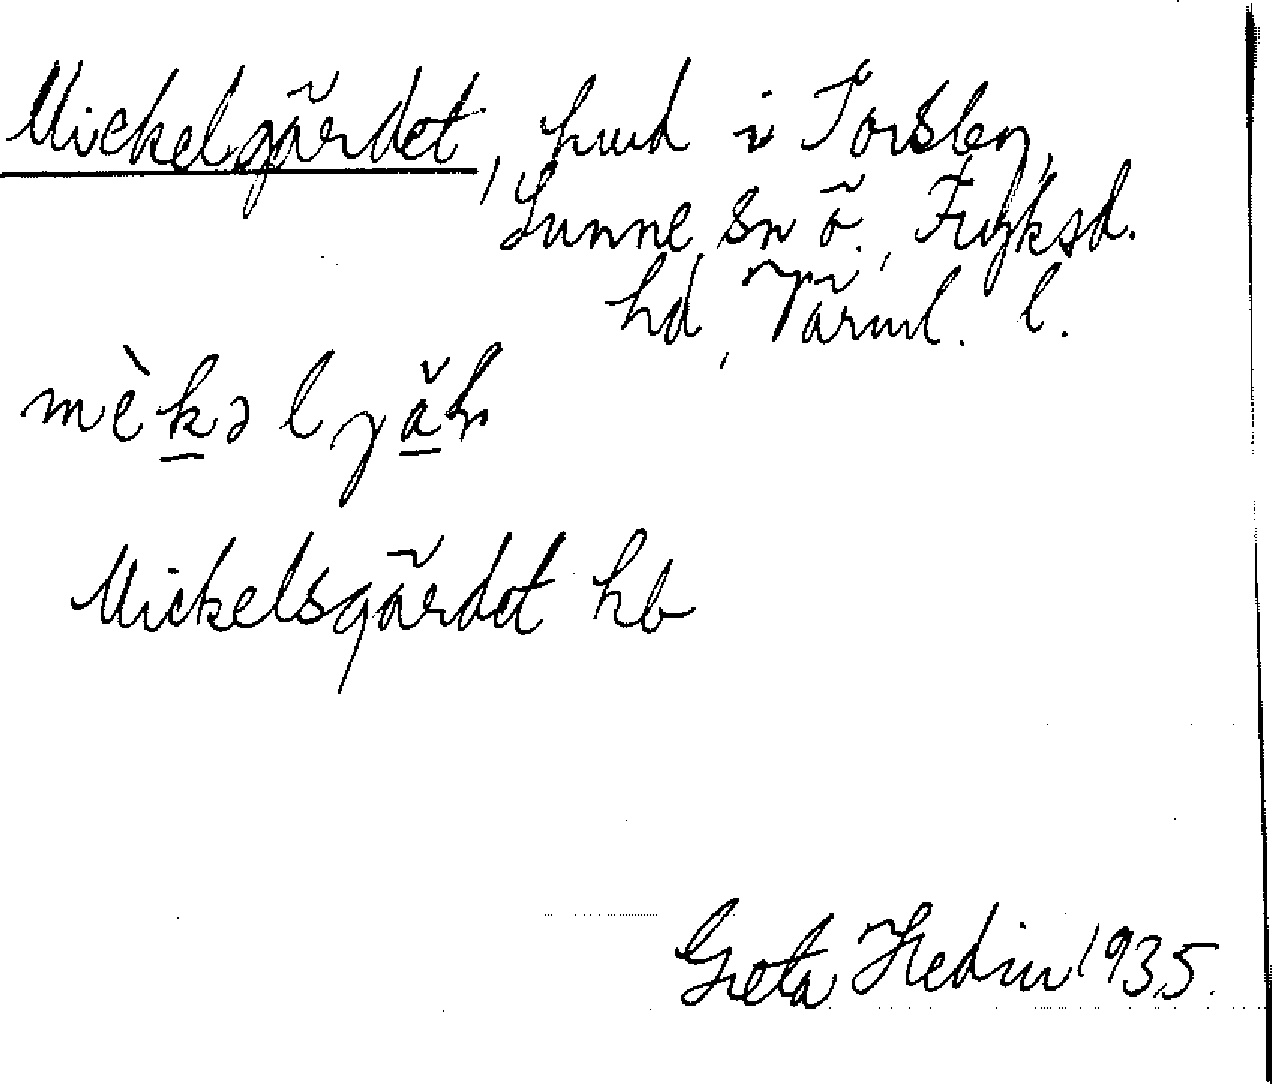 Mickelgärdet, hmd i Torsby,
Sunne sn ö., Fryksd.
hd, Värml. l.
mèkəlyăh
Mickelsgärdet hb
Greta Hedin 1935.